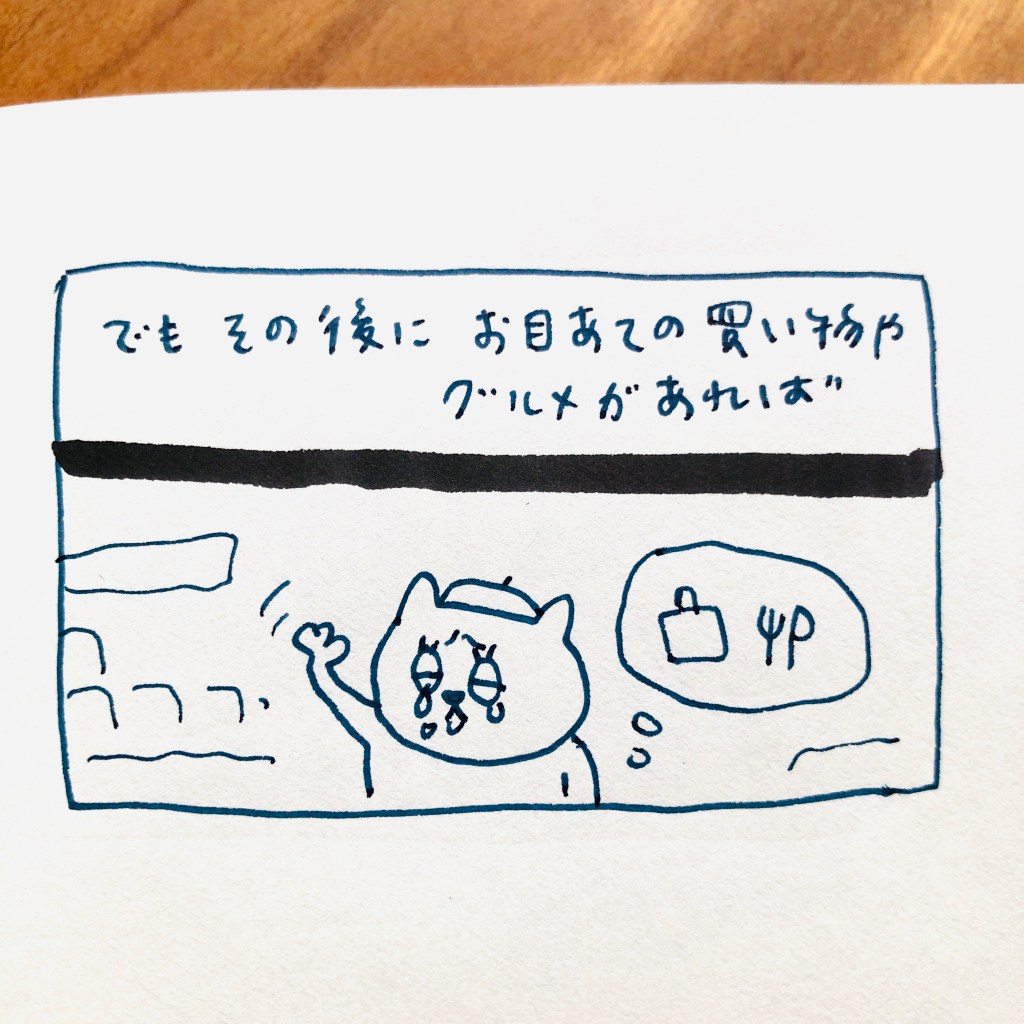 でも その後に お目あての 買い物や
グルメがあれば